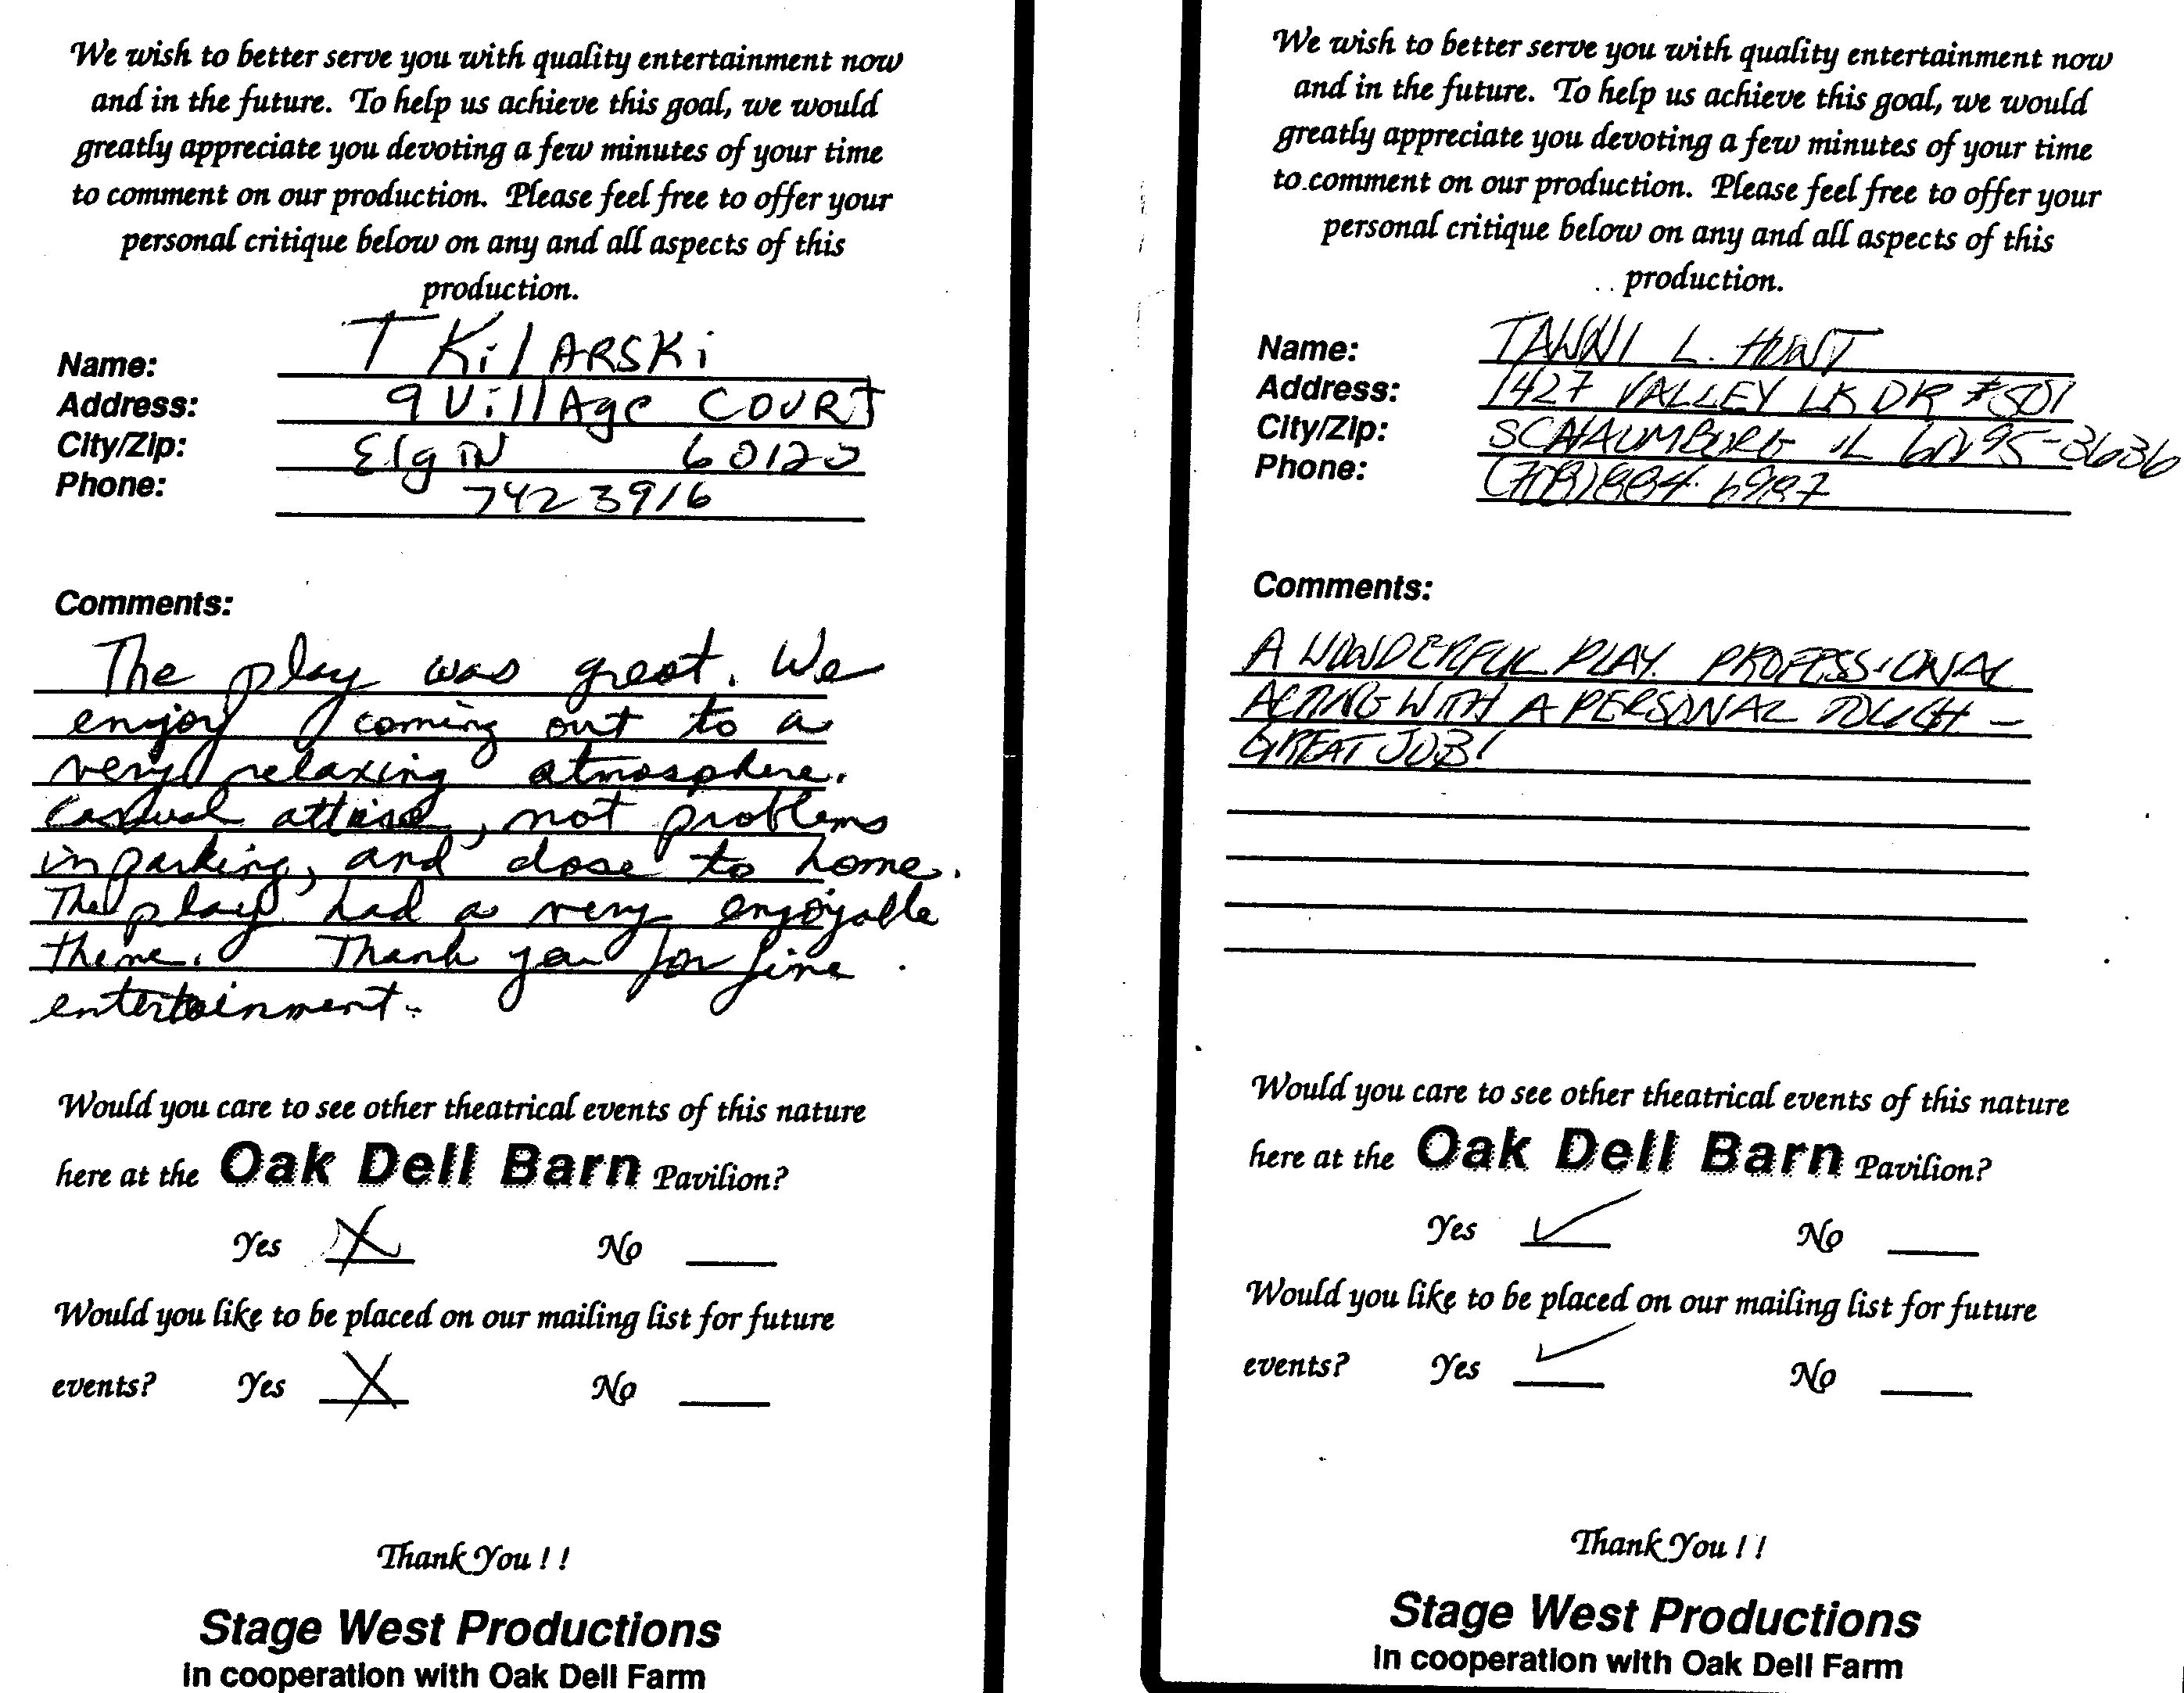 We wish to better serve you with quality entertainment now
and in the future. To help us achieve this goal, we would
greatly appreciate you devoting a few minutes of your time
to comment on our production. Please feel free to offer your
personal critique below on any and all aspects of this
production.
Name: T KilARSKi
Address: 9 VillAge COURT
City/Zip: ElgiN 60120
Phone: 742 3916
Comments:
The play was great. We
enjoy coming out to a
very relaxing atmosphere.
Casual attire, not problems
in parking, and close to home.
The play had a very enjoyable
theme. Thank you for fine
entertainment.
Would you care to see other theatrical events of this nature
here at the Oak Dell Barn Pavilion?
Yes X No
Would you like to be placed on our mailing list for future
events? Yes X No
Thank You ! !
Stage West Productions
in cooperation with Oak Dell Farm
We wish to better serve you with quality entertainment now
and in the future. To help us achieve this goal, we would
greatly appreciate you devoting a few minutes of your time
to comment on our production. Please feel free to offer your
personal critique below on any and all aspects of this
production.
Name: TAWNI L. HUNT
Address: 1427 VALLEY LK DR #501
City/Zip: SCHAUMBURG IL 60195-3636
Phone: (708) 884.6987
Comments:
A WONDERFUL PLAY. PROFESSIONAL
ACTING WITH A PERSONAL TOUCH -
GREAT JOB!
Would you care to see other theatrical events of this nature
here at the Oak Dell Barn Pavilion?
Yes ✓ No
Would you like to be placed on our mailing list for future
events? Yes ✓ No
Thank You ! !
Stage West Productions
in cooperation with Oak Dell Farm